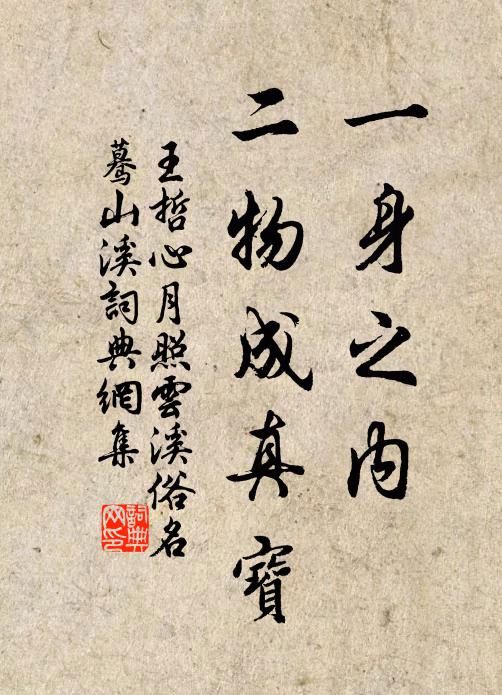 一身之内
二物成真寶
王哲心月照雲溪俗名
驀山溪詞典網集
詞典
网印